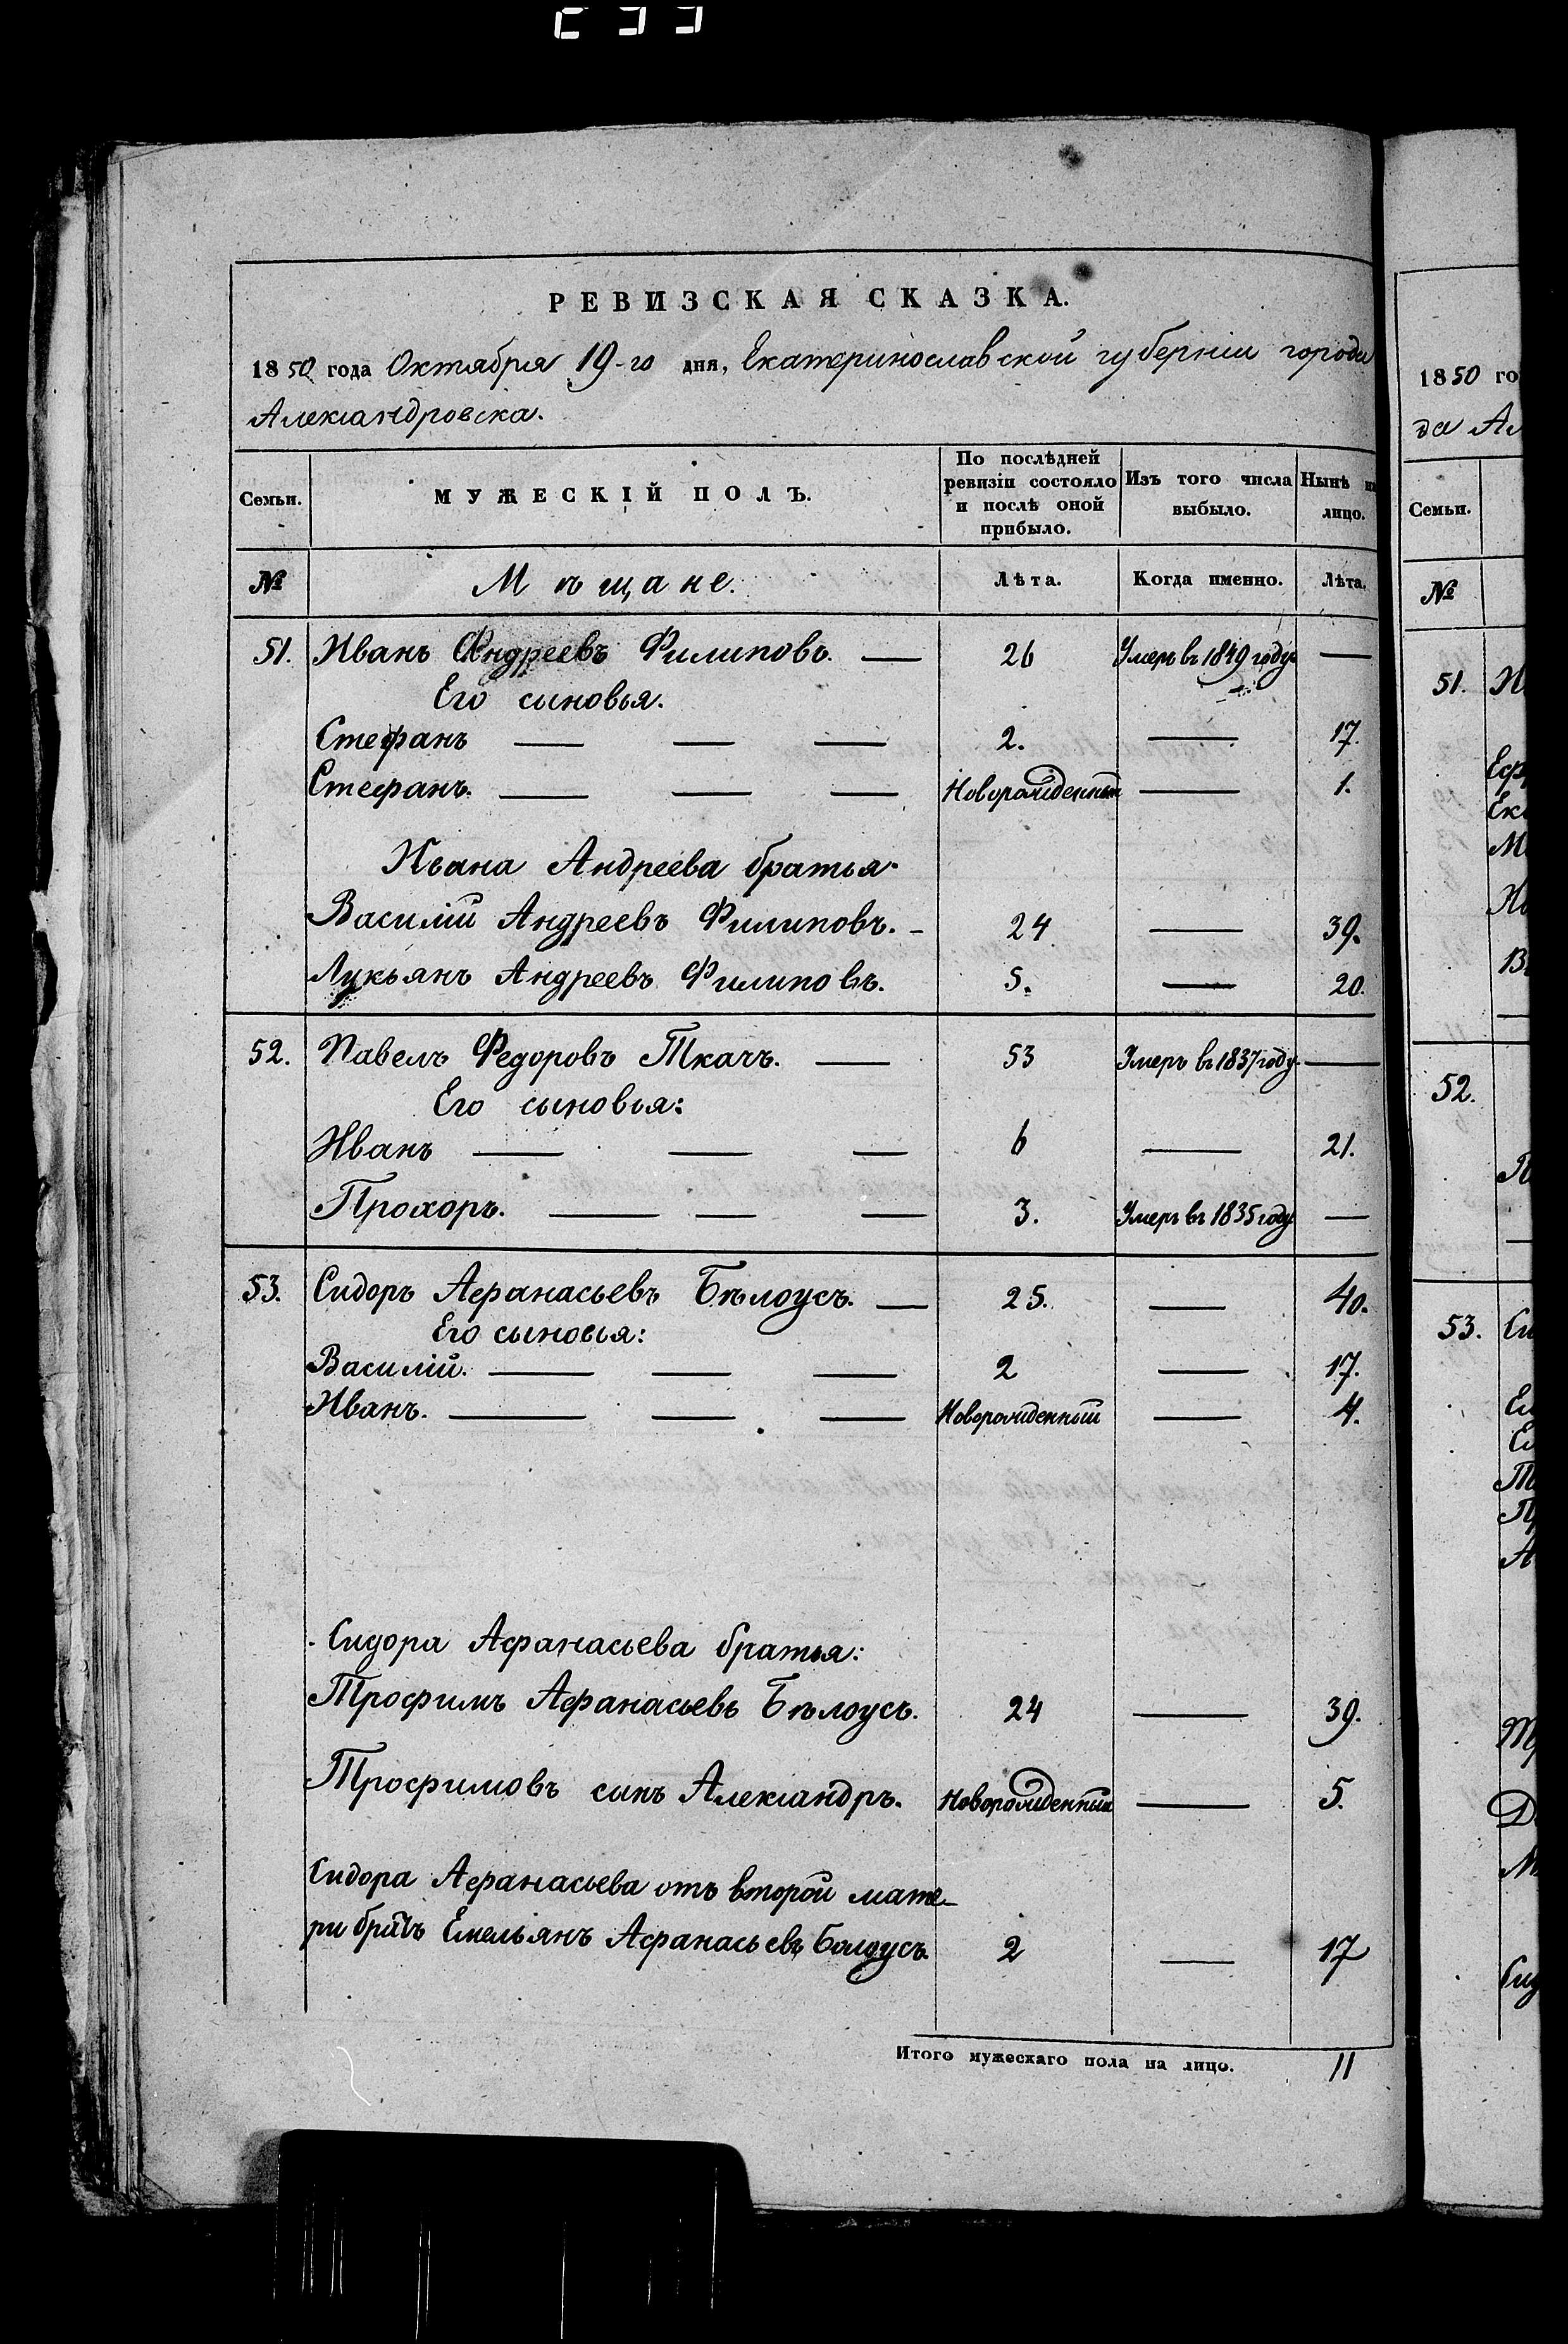 РЕВИЗСКАЯ СКАЗКА.
1850 года Октября 19-го дня, Екатеринославской губерніи города
Александровска.
Семьи. МУЖЕСКІЙ ПОЛЪ. По послѣдней ревизіи состояло и послѣ оной прибыло. Изъ того числа выбыло. Нынѣ на лицо.
№ Мѣщане. Лѣта. Когда именно. Лѣта.
51. Иванъ Андреевъ Филиповъ. — 26 Умеръ въ 1849 году —
Его сыновья.
Стефанъ — — — 2. — 17.
Стефанъ. — — — Новорожденный — 1.
Ивана Андреева братья.
Василій Андреевъ Филиповъ. - 24 — 39.
Лукьянъ Андреевъ Филиповъ. 5. — 20.
52. Павелъ Федоровъ Ткачъ. — 53 Умеръ въ 1837 году. —
Его сыновья:
Иванъ — — — 6 — 21.
Прохоръ. — — — 3. Умеръ въ 1835 году —
53. Сидоръ Афанасьевъ Бѣлоусъ. — 25. — 40.
Его сыновья:
Василій. — — — 2 — 17.
Иванъ. — — — Новорожденный — 4.
Сидора Афанасьева братья:
Трофимъ Афанасьевъ Бѣлоусъ. 24 — 39.
Трофимовъ сынъ Александръ. Новорожденный — 5.
Сидора Афанасьева отъ второй мате-
ри братъ Емельянъ Афанасьевъ Белоусъ. 2 — 17
Итого мужескаго пола на лицо. 11
1850 го
да Ал
Семьи.
№
51.
52.
53.